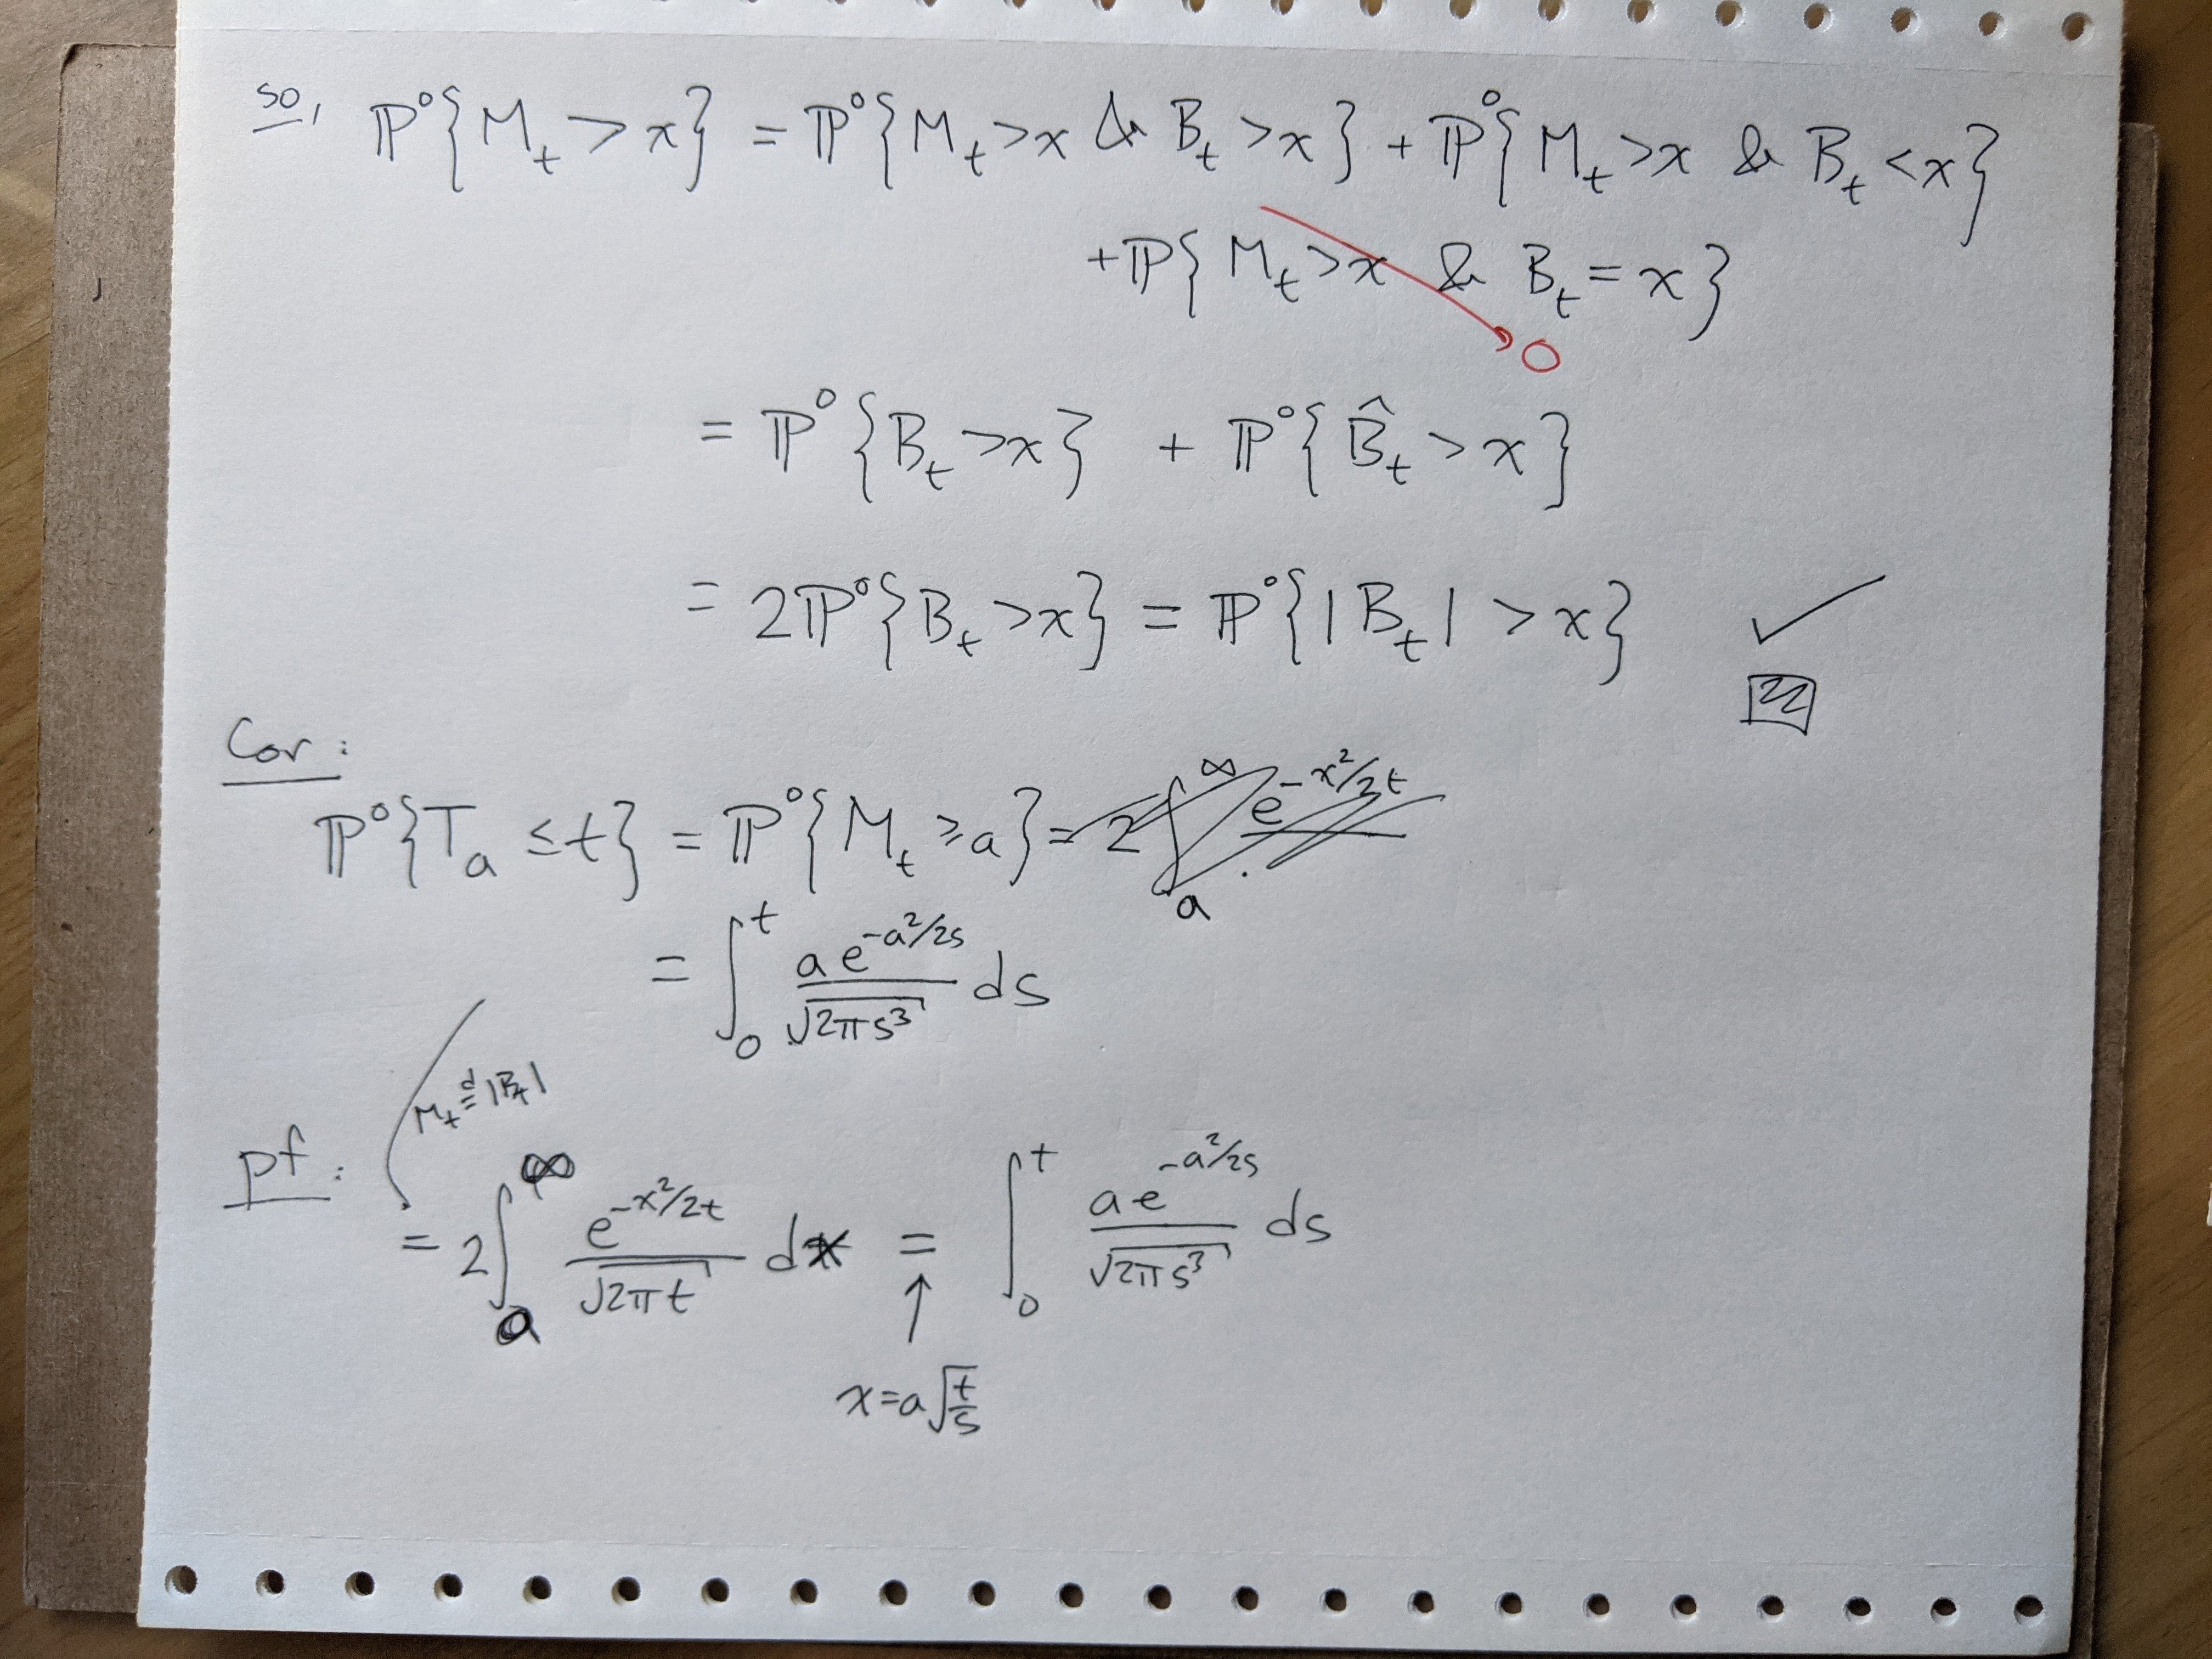 so, ℙ⁰{M_t > x} = ℙ⁰{M_t > x & B_t > x} + ℙ⁰{M_t > x & B_t < x}
+ ℙ{M_t > x & B_t = x}
0
= ℙ⁰{B_t > x} + ℙ⁰{B̂_t > x}
= 2ℙ⁰{B_t > x} = ℙ⁰{|B_t| > x} ✓
Cor:
ℙ⁰{T_a ≤ t} = ℙ⁰{M_t ≥ a} = 2 ∫_a^∞ e^{-x²/2t}
= ∫_0^t \frac{a e^{-a²/2s}}{\sqrt{2πs³}} ds
M_t \stackrel{d}{=} |B_t|
pf: = 2 ∫_a^∞ \frac{e^{-x²/2t}}{\sqrt{2πt}} dx = ∫_0^t \frac{a e^{-a²/2s}}{\sqrt{2πs³}} ds
↑
x = a\sqrt{\frac{t}{s}}